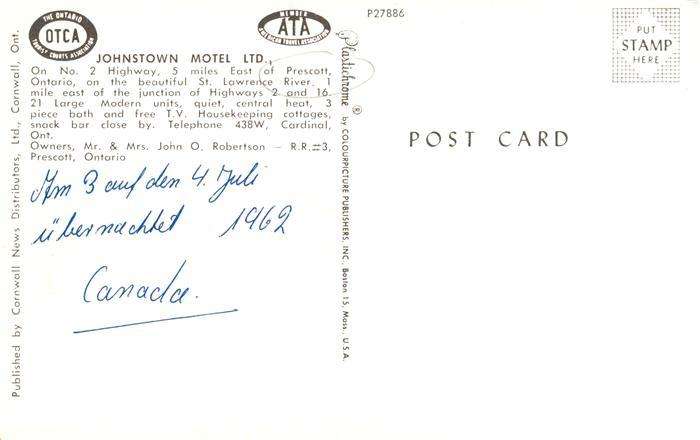 THE ONTARIO
OTCA
TOURIST COURTS ASSOCIATION
MEMBER
ATA
AMERICAN TRAVEL ASSOCIATION
P27886
PUT
STAMP
HERE
JOHNSTOWN MOTEL LTD.,
On No. 2 Highway, 5 miles East of Prescott,
Ontario, on the beautiful St. Lawrence River, 1
mile east of the junction of Highways 2 and 16.
21 Large Modern units, quiet, central heat, 3
piece bath and free T.V. Housekeeping cottages,
snack bar close by. Telephone 438W, Cardinal,
Ont.
Owners, Mr. & Mrs. John O. Robertson — R.R.#3,
Prescott, Ontario
Am 3 auf den 4. Juli
übernachtet 1962
Canada.
Published by Cornwall News Distributors, Ltd., Cornwall, Ont.
Plastichrome ® by COLOURPICTURE PUBLISHERS, INC. Boston 15, Mass. U.S.A.
POST CARD